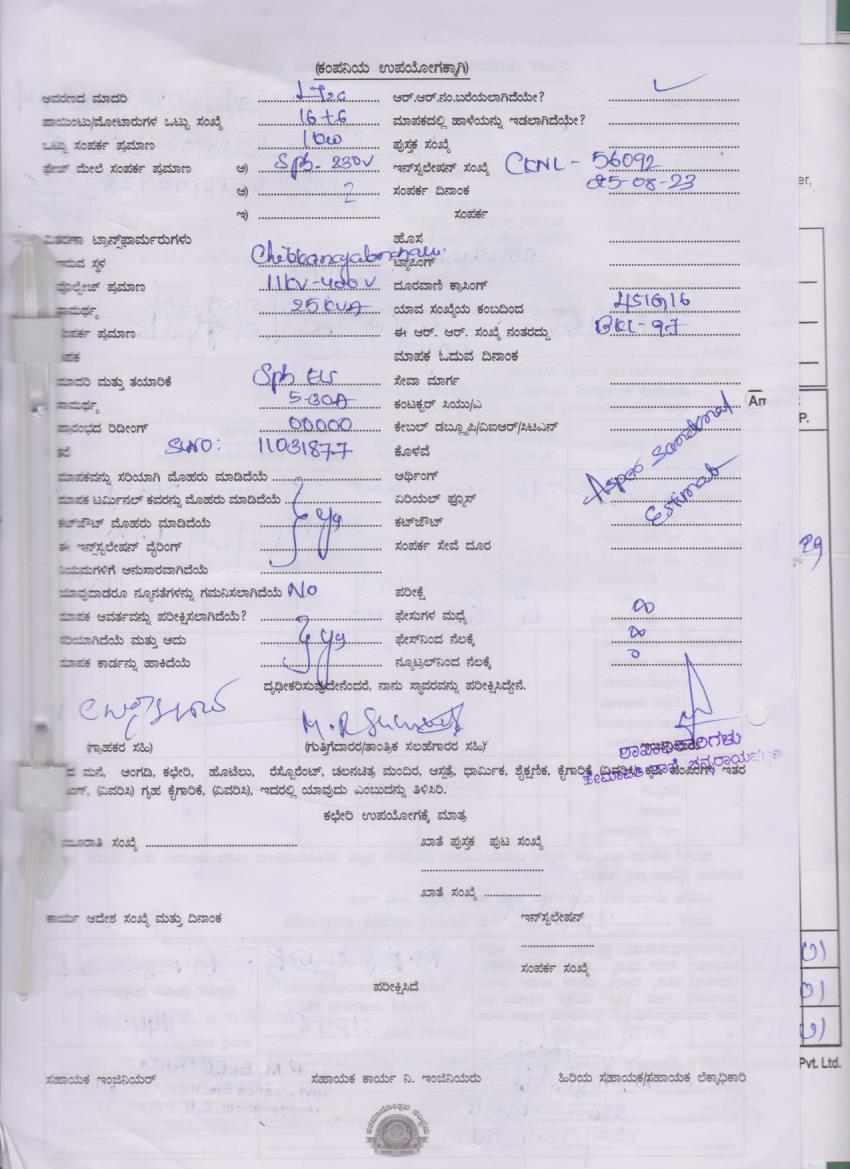 (ಕಂಪನಿಯ ಉಪಯೋಗಕ್ಕಾಗಿ)
ಆವರಣದ ಮಾದರಿ ಆರ್.ಆರ್.ನಂ.ಬರೆಯಲಾಗಿದೆಯೇ?
ಪಾಯಿಂಟು/ಮೋಟಾರುಗಳ ಒಟ್ಟು ಸಂಖ್ಯೆ 16+6 ಮಾಪಕದಲ್ಲಿ ಹಾಳೆಯನ್ನು ಇಡಲಾಗಿದೆಯೇ?
ಒಟ್ಟು ಸಂಪರ್ಕ ಪ್ರಮಾಣ ಪುಸ್ತಕ ಸಂಖ್ಯೆ
ಫೇಜ್ ಮೇಲೆ ಸಂಪರ್ಕ ಪ್ರಮಾಣ ಅ) Sph- 230V ಇನ್‌ಸ್ಟಲೇಷನ್ ಸಂಖ್ಯೆ 56092
ಆ) 2 ಸಂಪರ್ಕ ದಿನಾಂಕ 25-08-23
ಇ) ಸಂಪರ್ಕ
ವಿತರಣಾ ಟ್ರಾನ್ಸ್‌ಫಾರ್ಮರುಗಳು ಹೊಸ
ಇರುವ ಸ್ಥಳ ಟ್ಯಾಪಿಂಗ್
ವೋಲ್ಟೇಜ್ ಪ್ರಮಾಣ 11KV-400V ದೂರವಾಣಿ ಕ್ರಾಸಿಂಗ್
ಸಾಮರ್ಥ್ಯ 25KVA ಯಾವ ಸಂಖ್ಯೆಯ ಕಂಬದಿಂದ
ಸಂಪರ್ಕ ಪ್ರಮಾಣ ಈ ಆರ್. ಆರ್. ಸಂಖ್ಯೆ ನಂತರದ್ದು BKL-97
ಮಾಪಕ ಮಾಪಕ ಓದುವ ದಿನಾಂಕ
ಮಾದರಿ ಮತ್ತು ತಯಾರಿಕೆ Sph ಸೇವಾ ಮಾರ್ಗ
ಸಾಮರ್ಥ್ಯ 5-30A ಕಂಟಕ್ಟರ್ ಸಿಯು/ಎ
ಪ್ರಾರಂಭದ ರಿಡೀಂಗ್ 00000 ಕೇಬಲ್ ಡಬ್ಲ್ಯೂಪಿ/ವಿಐಆರ್/ಸಿಟಿಎನ್
SLNO: 11031877 ಕೊಳವೆ
ಮಾಪಕವನ್ನು ಸರಿಯಾಗಿ ಮೊಹರು ಮಾಡಿದೆಯೆ ಅರ್ಥಿಂಗ್
As per Sanctioned
Estimate
ಮಾಪಕ ಟರ್ಮಿನಲ್ ಕವರನ್ನು ಮೊಹರು ಮಾಡಿದೆಯೆ ಏರಿಯಲ್ ಫ್ಯೂಸ್
ಕಟ್‌ಔಟ್ ಮೊಹರು ಮಾಡಿದೆಯೆ ಕಟ್‌ಔಟ್
ಈ ಇನ್‌ಸ್ಟಲೇಷನ್ ವೈರಿಂಗ್ ಸಂಪರ್ಕ ಸೇವೆ ದೂರ
ನಿಯಮಗಳಿಗೆ ಅನುಸಾರವಾಗಿದೆಯೆ
ಯಾವುದಾದರೂ ನ್ಯೂನತೆಗಳನ್ನು ಗಮನಿಸಲಾಗಿದೆಯೆ No ಪರೀಕ್ಷೆ
ಮಾಪಕ ಆವರ್ತವನ್ನು ಪರೀಕ್ಷಿಸಲಾಗಿದೆಯೆ? ಫೇಸುಗಳ ಮಧ್ಯೆ ∞
ಸರಿಯಾಗಿದೆಯೆ ಮತ್ತು ಅದು ಫೇಸ್‌ನಿಂದ ನೆಲಕ್ಕೆ ∞
ಮಾಪಕ ಕಾರ್ಡನ್ನು ಹಾಕಿದೆಯೆ ನ್ಯೂಟ್ರಲ್‌ನಿಂದ ನೆಲಕ್ಕೆ 0
ದೃಢೀಕರಿಸುವುದೇನೆಂದರೆ, ನಾನು ಸ್ಥಾವರವನ್ನು ಪರೀಕ್ಷಿಸಿದ್ದೇನೆ.
(ಗ್ರಾಹಕರ ಸಹಿ) (ಗುತ್ತಿಗೆದಾರರ/ತಾಂತ್ರಿಕ ಸಲಹೆಗಾರರ ಸಹಿ)
ಶಾಖಾಧಿಕಾರಿಗಳು
ಮನೆ, ಅಂಗಡಿ, ಕಛೇರಿ, ಹೊಟೇಲು, ರೆಸ್ಟೋರೆಂಟ್, ಚಲನಚಿತ್ರ ಮಂದಿರ, ಆಸ್ಪತ್ರೆ, ಧಾರ್ಮಿಕ, ಶೈಕ್ಷಣಿಕ, ಕೈಗಾರಿಕೆ (ವಿವರಿಸಿ) ಇತರ
(ವಿವರಿಸಿ) ಗೃಹ ಕೈಗಾರಿಕೆ, (ವಿವರಿಸಿ), ಇದರಲ್ಲಿ ಯಾವುದು ಎಂಬುದನ್ನು ತಿಳಿಸಿರಿ.
ಕಛೇರಿ ಉಪಯೋಗಕ್ಕೆ ಮಾತ್ರ
ಸಂಖ್ಯೆ ಖಾತೆ ಪುಸ್ತಕ ಪುಟ ಸಂಖ್ಯೆ
ಖಾತೆ ಸಂಖ್ಯೆ
ಕಾರ್ಯ ಆದೇಶ ಸಂಖ್ಯೆ ಮತ್ತು ದಿನಾಂಕ ಇನ್‌ಸ್ಟಲೇಷನ್
ಸಂಪರ್ಕ ಸಂಖ್ಯೆ
ಪರೀಕ್ಷಿಸಿದೆ
Pvt. Ltd.
ಸಹಾಯಕ ಇಂಜಿನಿಯರ್ ಸಹಾಯಕ ಕಾರ್ಯ ನಿ. ಇಂಜಿನಿಯರು ಹಿರಿಯ ಸಹಾಯಕ/ಸಹಾಯಕ ಲೆಕ್ಕಾಧಿಕಾರಿ